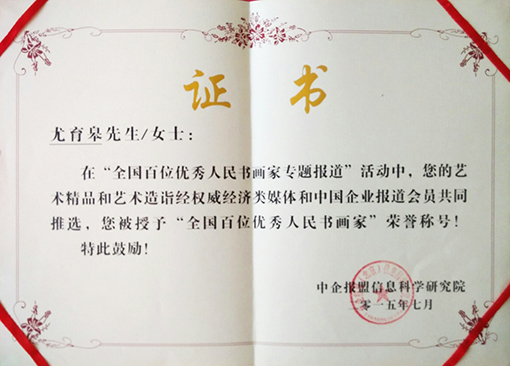 证 书
尤育皋先生/女士：
在“全国百位优秀人民书画家专题报道”活动中，您的艺
术精品和艺术造诣经权威经济类媒体和中国企业报道会员共同
推选，您被授予“全国百位优秀人民书画家”荣誉称号！
特此鼓励！
中企报盟信息科学研究院
二〇一五年七月